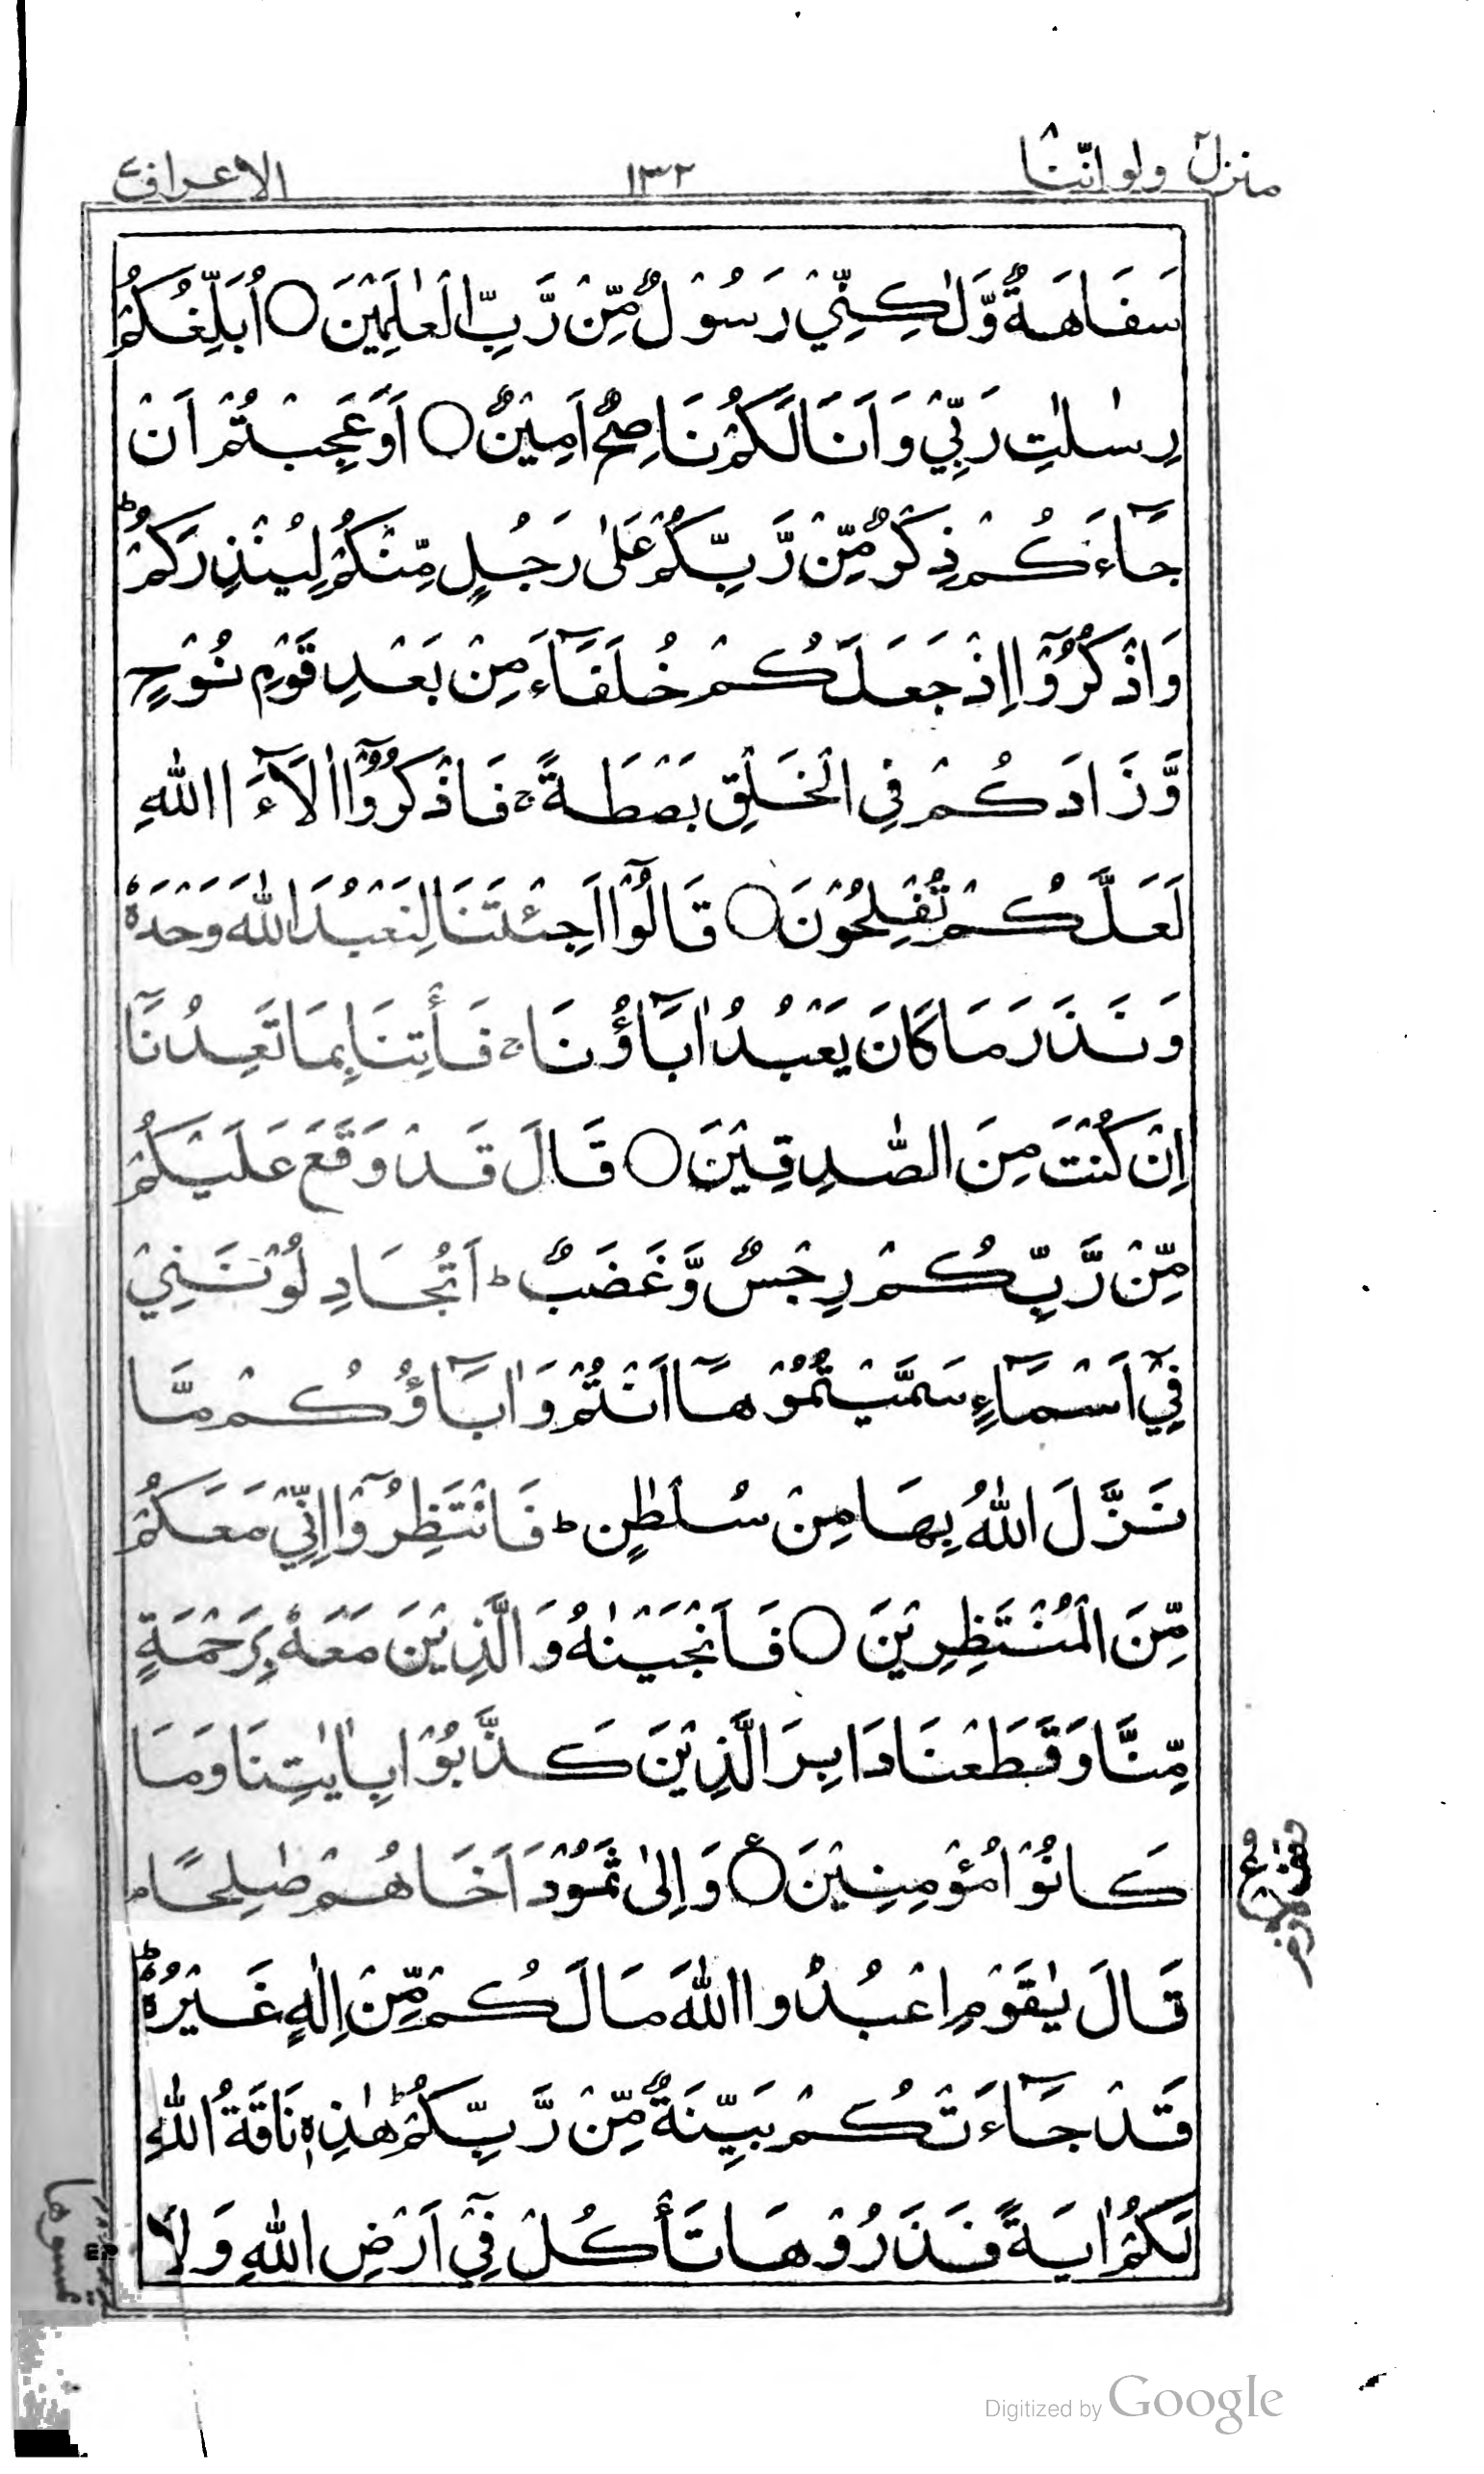 منزل٢ ولو اننا ٨
١٣٢
الاعراف ٧
سَفَاهَةٌ وَّلٰكِنِّيْ رَسُوْلٌ مِّنْ رَّبِّ الْعٰلَمِيْنَ ○ اُبَلِّغُكُمْ
رِسٰلٰتِ رَبِّيْ وَاَنَا لَكُمْ نَاصِحٌ اَمِيْنٌ ○ اَوَعَجِبْتُمْ اَنْ
جَآءَكُمْ ذِكْرٌ مِّنْ رَّبِّكُمْ عَلٰى رَجُلٍ مِّنْكُمْ لِيُنْذِرَكُمْ ؕ
وَاذْكُرُوْۤا اِذْ جَعَلَكُمْ خُلَفَآءَ مِنْ بَعْدِ قَوْمِ نُوْحٍ
وَّزَادَكُمْ فِي الْخَلْقِ بَصْطَةً ۚ فَاذْكُرُوْۤا اٰلَآءَ اللّٰهِ
لَعَلَّكُمْ تُفْلِحُوْنَ ○ قَالُوْۤا اَجِئْتَنَا لِنَعْبُدَ اللّٰهَ وَحْدَهٗ
وَنَذَرَ مَا كَانَ يَعْبُدُ اٰبَآؤُنَا ۚ فَأْتِنَا بِمَا تَعِدُنَآ
اِنْ كُنْتَ مِنَ الصّٰدِقِيْنَ ○ قَالَ قَدْ وَقَعَ عَلَيْكُمْ
مِّنْ رَّبِّكُمْ رِجْسٌ وَّغَضَبٌ ؕ اَتُجَادِلُوْنَنِيْ
فِيْۤ اَسْمَآءٍ سَمَّيْتُمُوْهَآ اَنْتُمْ وَاٰبَآؤُكُمْ مَّا
نَزَّلَ اللّٰهُ بِهَا مِنْ سُلْطٰنٍ ؕ فَانْتَظِرُوْۤا اِنِّيْ مَعَكُمْ
مِّنَ الْمُنْتَظِرِيْنَ ○ فَاَنْجَيْنٰهُ وَالَّذِيْنَ مَعَهٗ بِرَحْمَةٍ
مِّنَّا وَقَطَعْنَا دَابِرَ الَّذِيْنَ كَذَّبُوْا بِاٰيٰتِنَا وَمَا
كَانُوْا مُؤْمِنِيْنَ ○ ع وَاِلٰى ثَمُوْدَ اَخَاهُمْ صٰلِحًا ۘ
قَالَ يٰقَوْمِ اعْبُدُوا اللّٰهَ مَا لَكُمْ مِّنْ اِلٰهٍ غَيْرُهٗ ؕ
قَدْ جَآءَتْكُمْ بَيِّنَةٌ مِّنْ رَّبِّكُمْ ؕ هٰذِهٖ نَاقَةُ اللّٰهِ
لَكُمْ اٰيَةً فَذَرُوْهَا تَأْكُلْ فِيْۤ اَرْضِ اللّٰهِ وَلَا
تمسوها
Digitized by Google